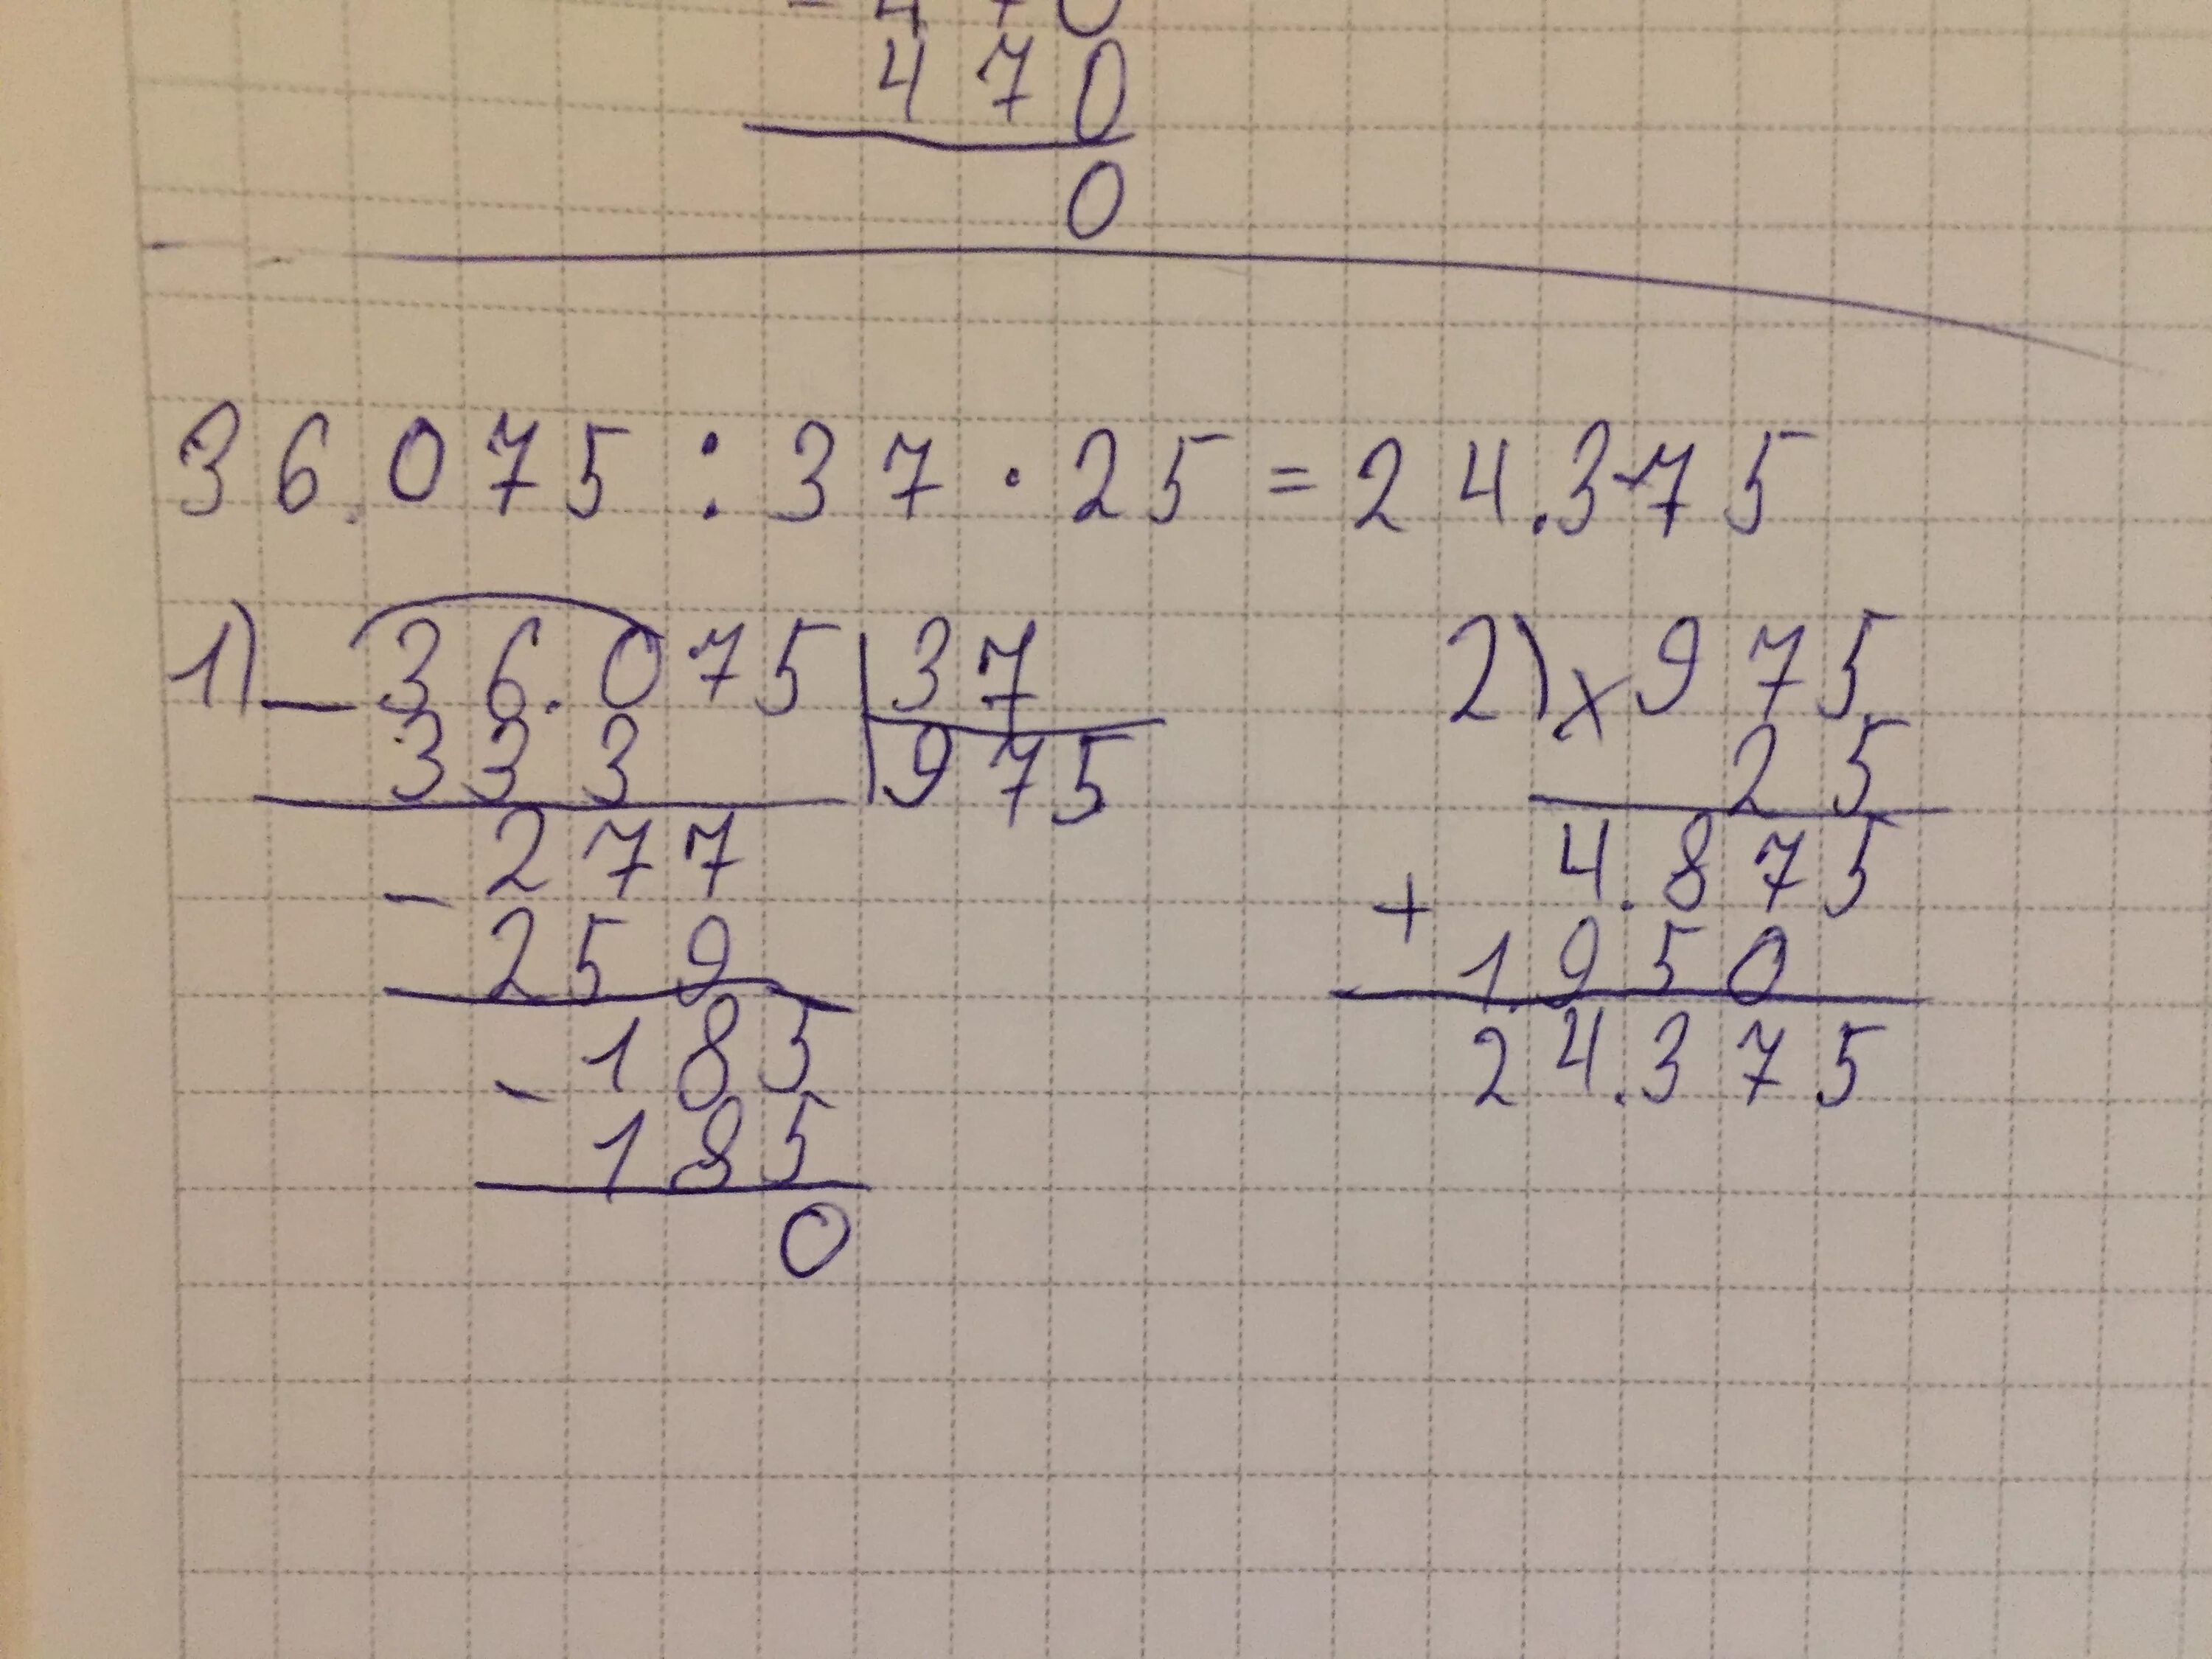 - 4 7 0
4 7 0
0
36.075 : 37 · 25 = 24.375
1) - 36.075 | 37    2) × 975
333 | 975    25
- 277    4.875
259    + 1.950
- 185    24.375
185
0